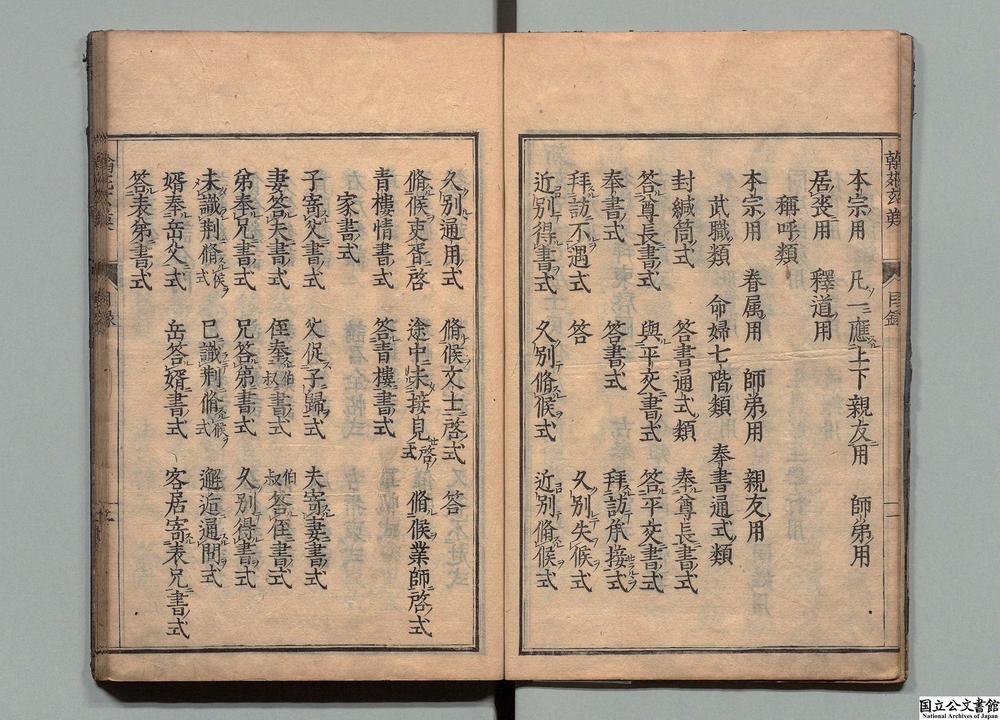 本宗用　凡一應上下親友用　師弟用
居喪用　釋道用
稱呼類
本宗用　眷属用　師弟用　親友用
武職類　命婦七階類　奉書通式類
封緘筒式　答書通式類　奉尊長書式
答尊長書式　與平交書式　答平交書式
奉書式　答書式　拜訪承接式
拜訪不遇式　答　久別失候式
近別得書式　久別脩候式　近別脩候式
久別通用式　脩候文士啓式　又　答
脩候吏胥啓　途中未接見啓式　脩候業師啓式
青樓情書式　答青樓書式
家書式
子寄父書式　父促子歸式　夫寄妻書式
妻答夫書式　侄奉伯叔書式　伯叔答侄書式
弟奉兄書式　兄答弟書式　久別得書式
未識荆脩候式　已識荆脩候式　邂逅通問式
婿奉岳父式　岳答婿書式　客居寄表兄書式
答表弟書式
目録
国立公文書館
National Archives of Japan